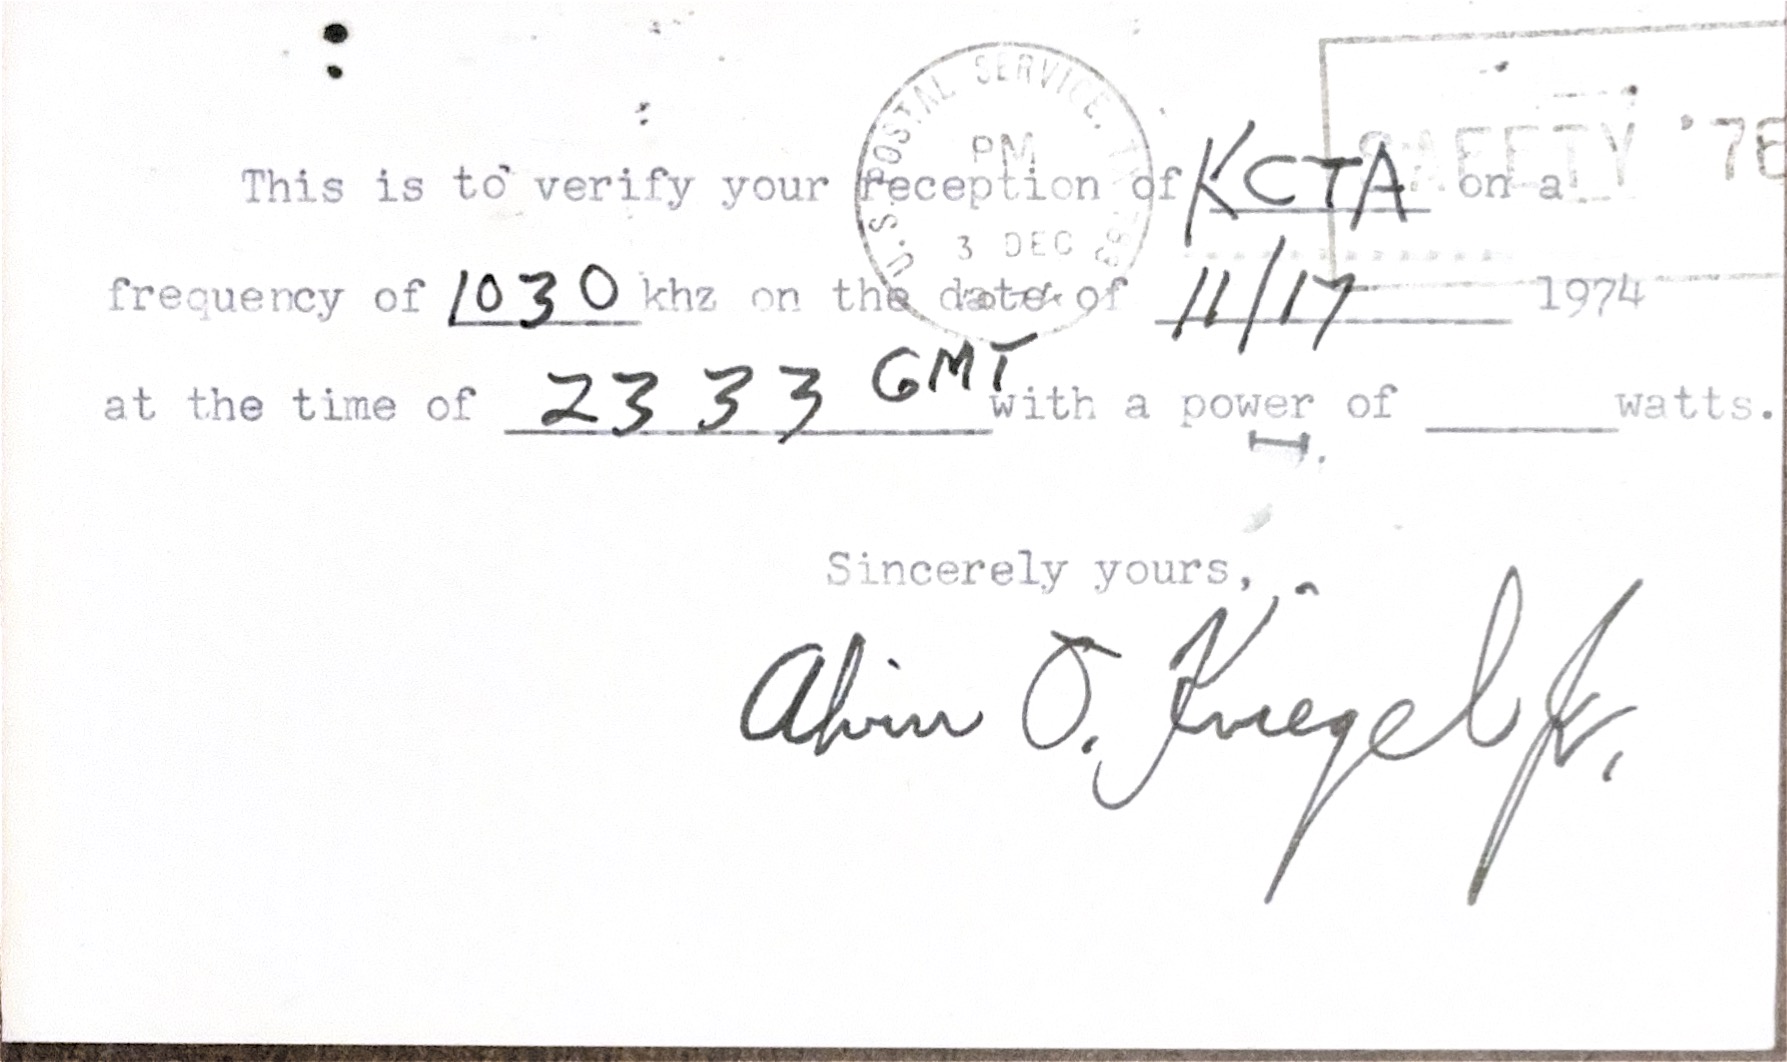 U.S. POSTAL SERVICE, T
PM
3 DEC
SAFETY '76
This is to verify your reception of KCTA on a
frequency of 1030 khz on the date of 11/17 1974
at the time of 2333 GMT with a power of watts.
Sincerely yours,
Alvin O. Kriegel Jr.